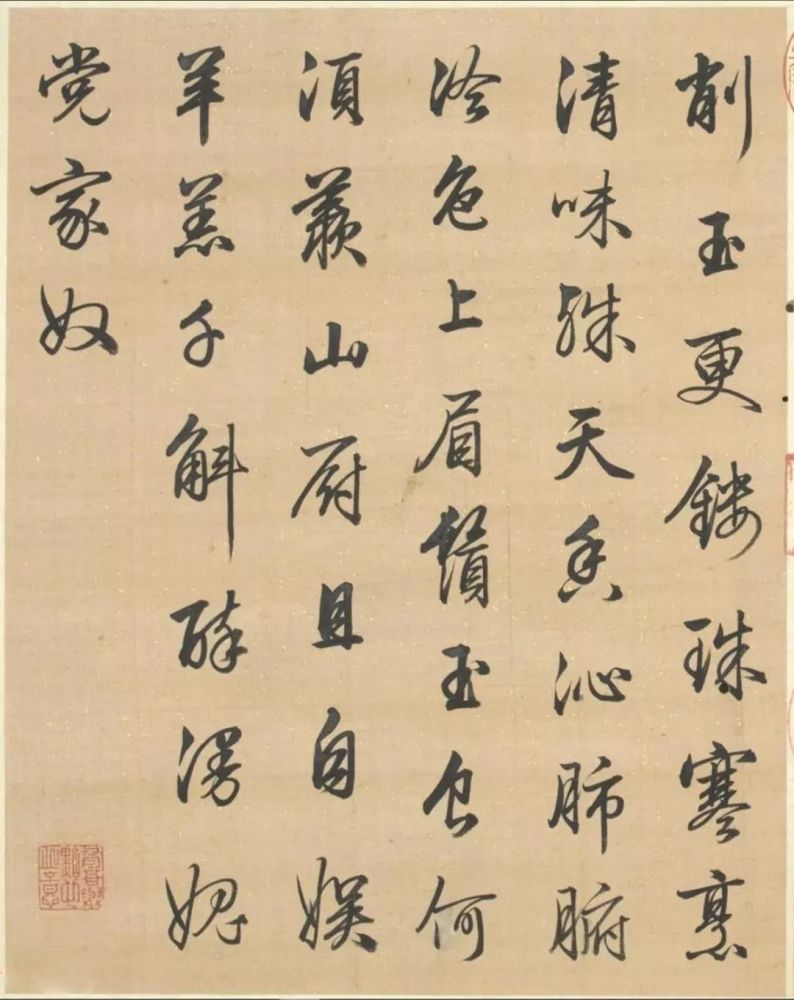 削玉更鏤珠寒烹
清味殊天香沁肺腑
冷色上眉鬚玉食何
須羨山厨且自娱
羊羔千斛醉漫媿
党家奴